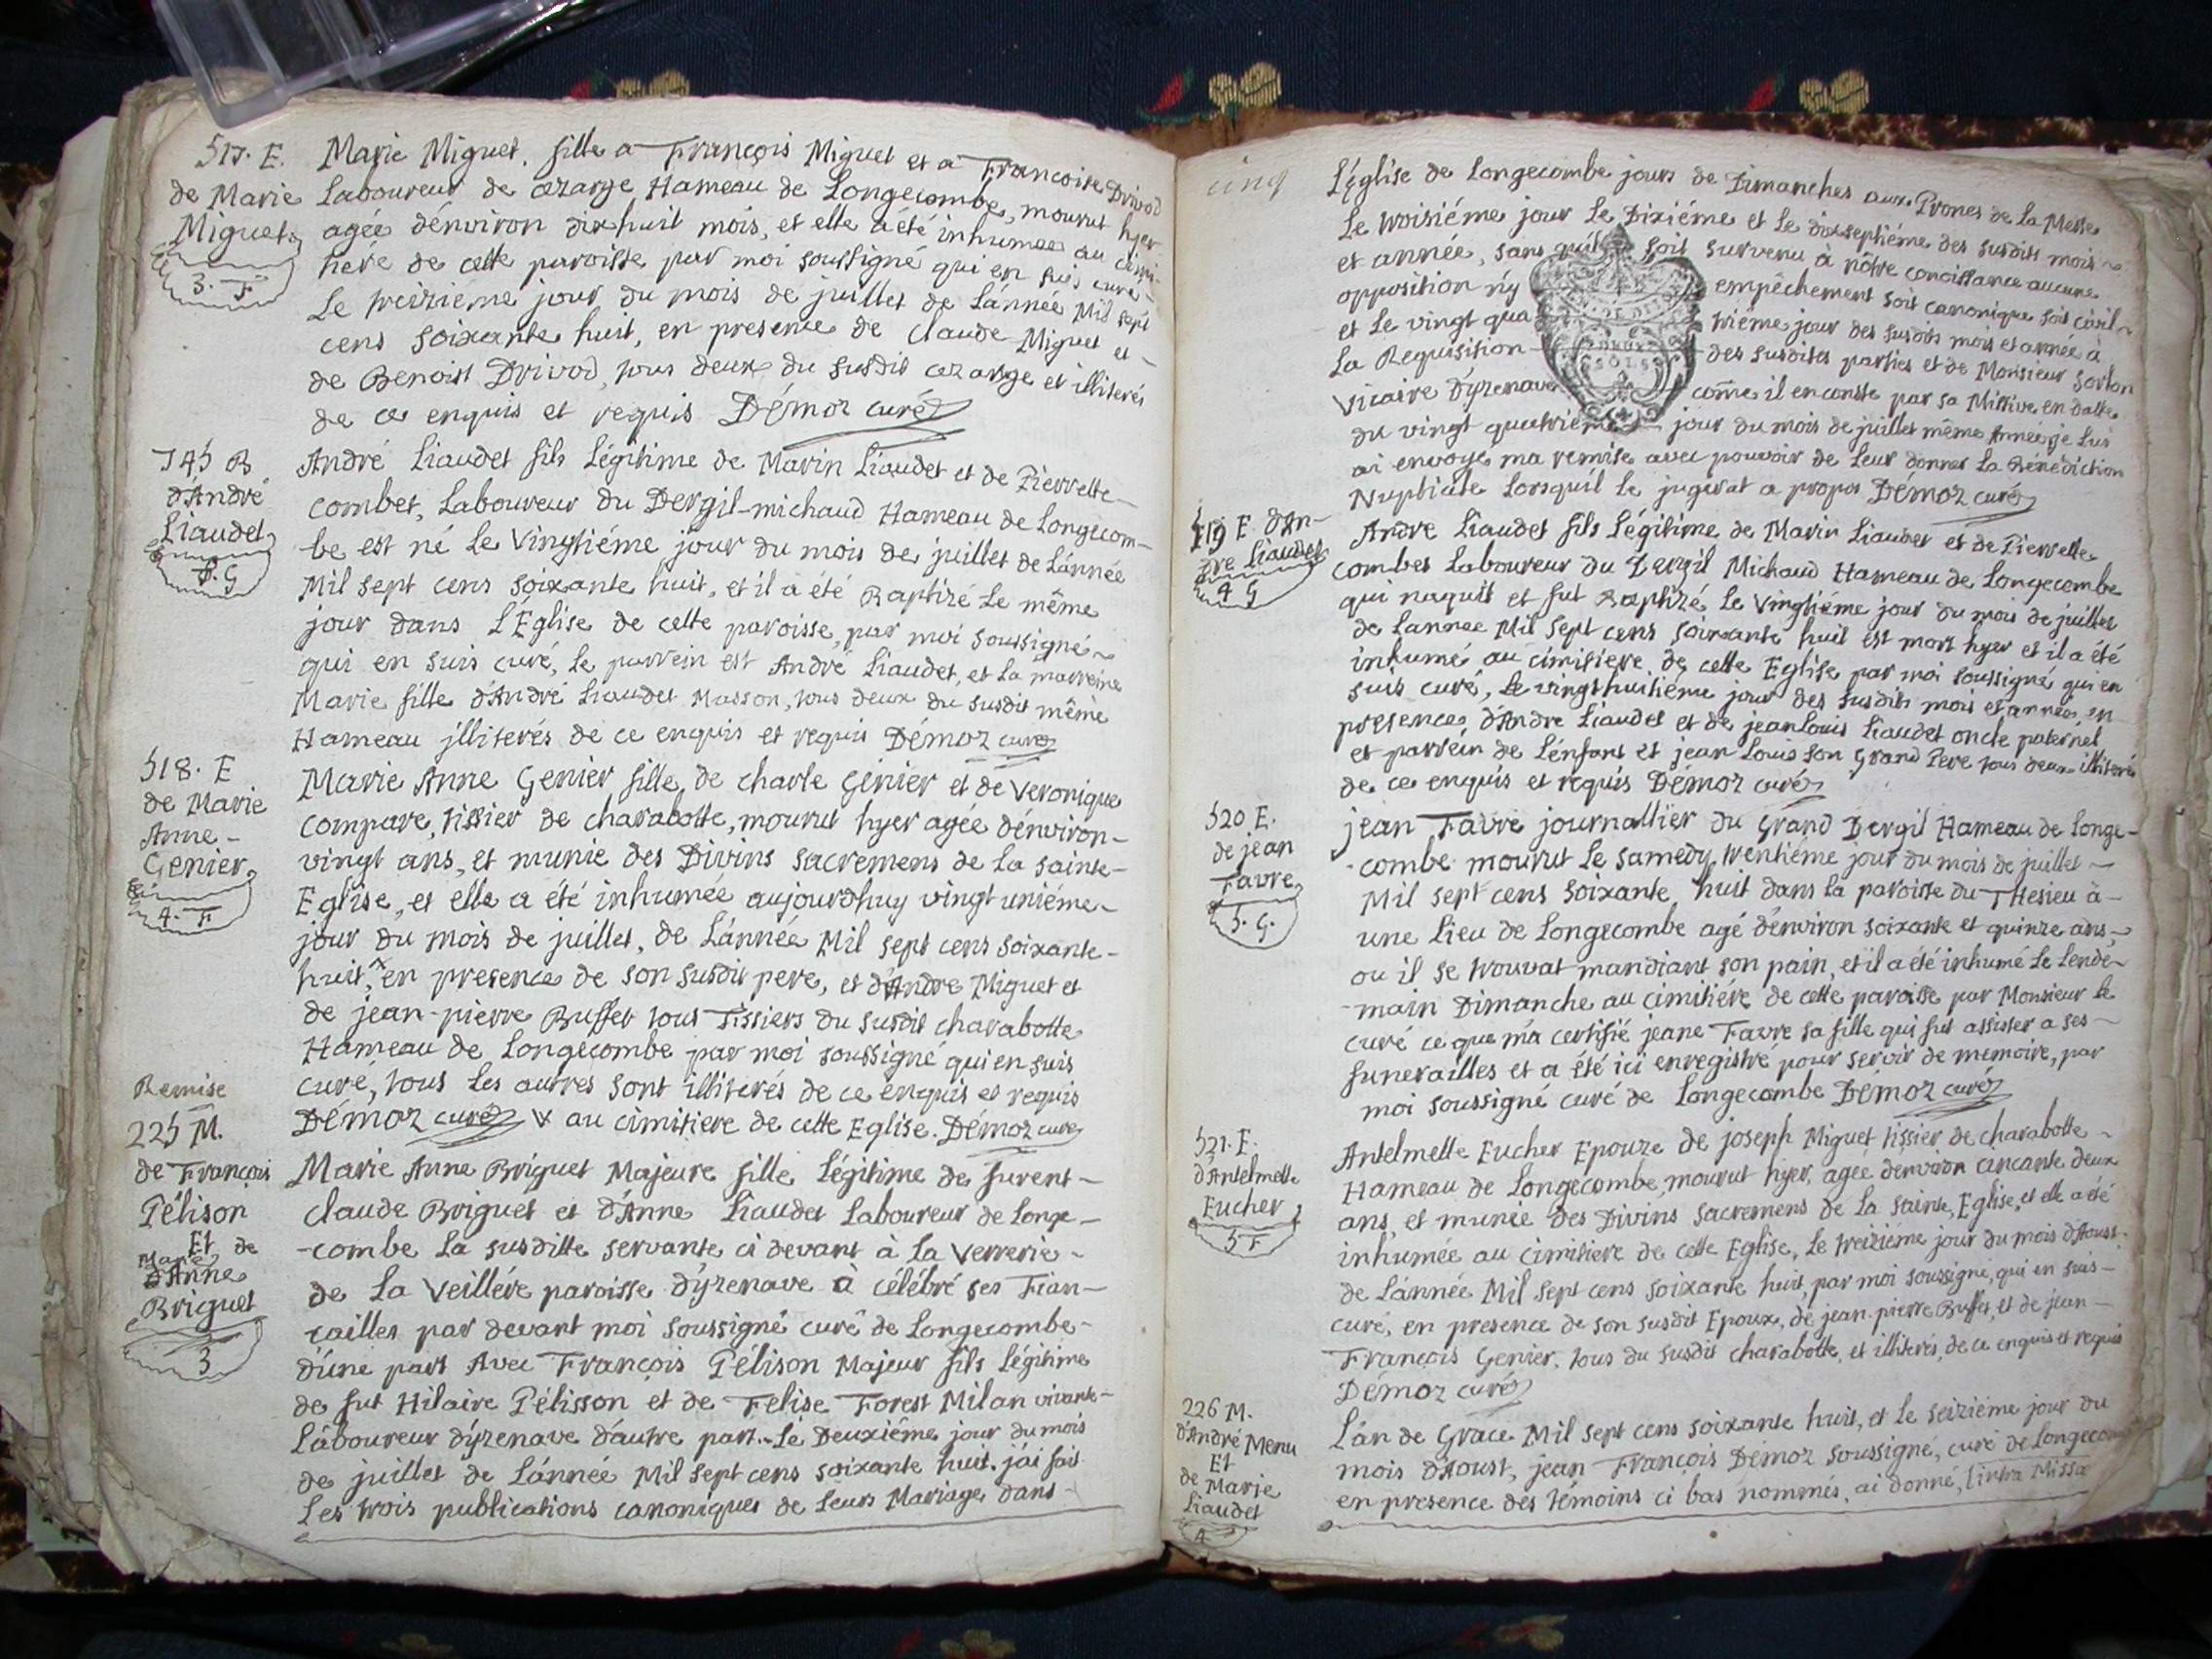 517. E.
de Marie
Miguet
3. F
Marie Miguet, fille a François Miguet et a Francoise Drivod
Laboureur de cezarge Hameau de Longecombe, mourut hyer
agée dénviron dix huit mois, et elle a été inhumee au cimi-
tiére de cette paroisse par moi soussigné qui en suis curé
Le treiziéme jour du mois de juillet de Lánnée Mil sept
cens soixante huit, en presence de claude Miguet et
de Benoist Drivod, tous deux du susdit cezarge et illiterés
de ce enquis et requis Démoz curé
745 B
dAndré
Liaudet
G
André Liaudet fils Légitime de Marin Liaudet et de Pierrette
combet, Laboureur du Dergil-michaud Hameau de Longecom-
be est né Le Vingtiéme jour du mois de juillet de Lánnée
Mil sept cens soixante huit, et il a été Baptizé Le même
jour dans L'Eglise de cette paroisse, par moi soussigné
qui en suis curé, Le parrein est André Liaudet, et La marreine
Marie fille d'André Liaudet Masson, tous deux du susdit même
Hameau jlliterés de ce enquis et requis Démoz curé
518. E
de Marie
Anne -
Genier
4. F
Marie Anne Genier fille de charle Génier et de Veronique
compare, tissier de charabotte, mourut hyer agée dénviron-
vingt ans, et munie des Divins sacremens de La sainte-
Eglise, et elle a été inhumée aujourdhuy vingt uniéme
jour du mois de juillet, de Lánnée Mil sept cens soixante-
huit, x en presence de son susdit pere, et d'Andre Miguet et
de jean-pierre Buffet tous Tissiers du susdit charabotte
Hameau de Longecombe par moi soussigné qui en suis
curé, tous Les autres sont illiterés de ce enquis et requis
Démoz curé x au cimitiere de cette Eglise. Démoz curé
Remise
225 M.
de François
Pélison
Et de
Marie
d'Anne
Briguet
3
Marie Anne Briguet Majeure fille Légitime de furent-
claude Briguet et d'Anne Liaudet Laboureur de Longe-
-combe La susditte servante ci devant à La Verrerie-
de La Veillére paroisse dýzenave à célébré ses Fian-
cailles par devant moi soussigné curé de Longecombe-
d'úne part Avec François Pélison Majeur fils Légitime
de fut Hilaire Pélisson et de Felise Forest Milan vivante-
Láboureur dýzenave d'áutre part. Le Deuxiéme jour du mois
de juillet de Lánnée Mil sept cens soixante huit. j'ái fait
Les trois publications canoniques de Leurs Mariage dans-
cinq
L'église de Longecombe jours de Dimanches aux Prones de La Messe
Le troisiéme jour Le Dixiéme et Le dixseptiéme des susdits mois
et année, sans qu'il soit survenu à nôtre conoissance aucune
opposition ný empêchement soit canonique soit civil
et Le vingt qua triéme jour des susdits mois et année à
La Requisition des susdites parties et de Monsieur Sorlon
Vicaire Dýzenave come il en conste par sa Missive en datte
du vingt quatriéme jour du mois de juillet même Année, je Lui
ai envoye ma remise avec pouvoir de Leur donner La Bénédiction
Nuptiale Lorsquíl Le jugerat a propos Démoz curé
519 E. dAn-
dre Liaudet
4 G
Andre Liaudet fils Légitime de Marin Liaudet et de Pierrette
combet Laboureur du Dergil Michaud Hameau de Longecombe
qui naquit et fut Baptizé Le Vingtiéme jour du mois de juillet
de Lannee Mil sept cens soixante huit est mort hyer et il a été
inhumé au cimitiere de cette Eglise par moi soussigné qui en
suis curé, Le vingt huitiéme jour des susdits mois et année, en
presence d'Andre Liaudet et de jean Louis Liaudet oncle paternel
et parrein de Lénfant et jean Louis son Grand Pere tous deux illiterés
de ce enquis et requis Démoz curé
520 E.
de jean
Favre
5. G.
jean Favre journallier du Grand Dergil Hameau de Longe-
-combe mourut Le samedy trentiéme jour du mois de juillet
Mil sept cens soixante huit dans La paroisse du THesieu à-
une Lieu de Longecombe agé dénviron soixante et quinze ans,
ou il se trouvat mandiant son pain, et il a été inhumé Le Lende-
-main Dimanche au cimitiére de cette paroisse par Monsieur Le
curé ce que má certifié jeane Favre sa fille qui fut assister a ses
funerailles et a été ici enregistré pour servir de memoire, par
moi soussigné curé de Longecombe Démoz curé
521. E.
dAntelmette
Eucher
5 F
Antelmette Eucher Epouze de joseph Miguet tissier de charabotte
Hameau de Longecombe, mourut hyer, ágée dénviron cincante deux
ans, et munie des Divins sacremens de La sainte Eglise, et elle a été
inhumée au cimitiere de cette Eglise, Le treiziéme jour du mois dAoust
de Lánnée Mil sept cens soixante huit, par moi soussigné, qui en suis-
curé, en presence de son susdit Epoux, de jean-pierre Buffet, et de jean-
François Genier, tous du susdit charabotte, et illiterés, de ce enquis et requis
Démoz curé
226 M.
dAndré Menu
Et
de Marie
Liaudet
4
Lán de Grace Mil sept cens soixante huit, et Le seiziéme jour du
mois dAoust, jean François Démoz soussigné, curé de Longecom
en presence des témoins ci bas nommés, ai donné, (intra Missæ